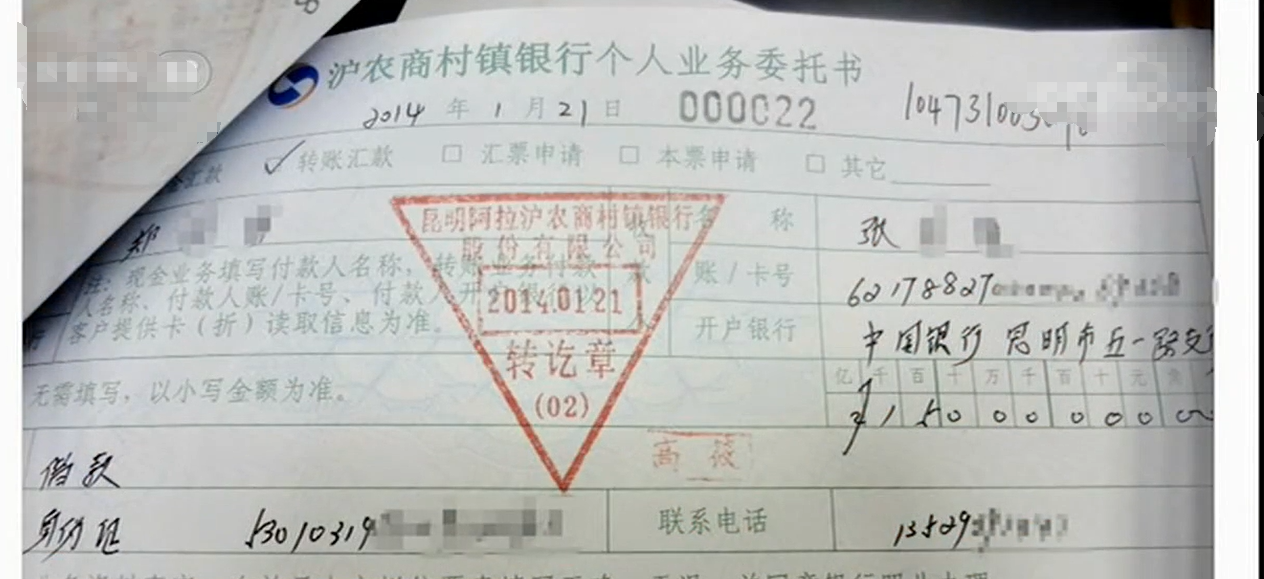 沪农商村镇银行个人业务委托书
2014 年 1 月 21 日 000022 104731003
汇款 ✓ 转账汇款 □ 汇票申请 □ 本票申请 □ 其它
郑 名 称 张
昆明阿拉沪农商村镇银行
股份有限公司
2014.01.21
转讫章
(02)
注：现金业务填写付款人名称，转账业务付款
人名称、付款人账/卡号、付款人开户银行以
客户提供卡（折）读取信息为准。
账/卡号 62178827
开户银行 中国银行 昆明市五一路支
无需填写，以小写金额为准。
亿 千 百 十 万 千 百 十 元 角
¥ 1 5 0 0 0 0 0 0 0
高筱
借款
身份证 53010319 联系电话 13529